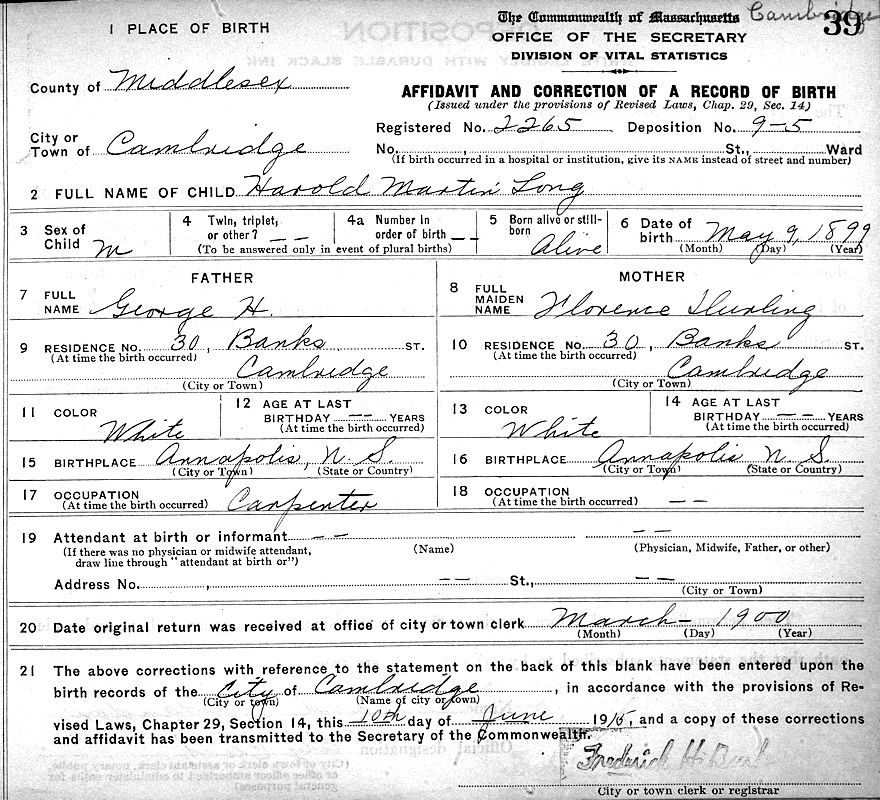 Cambridge
39
1 PLACE OF BIRTH
The Commonwealth of Massachusetts
OFFICE OF THE SECRETARY
DIVISION OF VITAL STATISTICS
County of Middlesex
AFFIDAVIT AND CORRECTION OF A RECORD OF BIRTH
(Issued under the provisions of Revised Laws, Chap. 29, Sec. 14)
Registered No. 2265 Deposition No. 9-5
City or
Town of Cambridge
No. , St., Ward
(If birth occurred in a hospital or institution, give its NAME instead of street and number)
2 FULL NAME OF CHILD Harold Martin Long
3 Sex of Child M
4 Twin, triplet, or other? -- 
4a Number in order of birth --
(To be answered only in event of plural births)
5 Born alive or still-born Alive
6 Date of birth May 9, 1899
(Month) (Day) (Year)
FATHER
7 FULL NAME George H.
MOTHER
8 FULL MAIDEN NAME Florence Hurling
9 RESIDENCE No. 30, Banks ST.
(At time the birth occurred)
Cambridge
(City or Town)
10 RESIDENCE No. 30, Banks ST.
(At time the birth occurred)
Cambridge
(City or Town)
11 COLOR White
12 AGE AT LAST
BIRTHDAY -- YEARS
(At time the birth occurred)
13 COLOR White
14 AGE AT LAST
BIRTHDAY -- YEARS
(At time the birth occurred)
15 BIRTHPLACE Annapolis, N. S.
(City or Town) (State or Country)
16 BIRTHPLACE Annapolis N. S.
(City or Town) (State or Country)
17 OCCUPATION Carpenter
(At time the birth occurred)
18 OCCUPATION --
(At time the birth occurred)
19 Attendant at birth or informant -- --
(If there was no physician or midwife attendant, (Name) (Physician, Midwife, Father, or other)
draw line through "attendant at birth or")
Address No. , -- St., --
(City or Town)
20 Date original return was received at office of city or town clerk March - 1900
(Month) (Day) (Year)
21 The above corrections with reference to the statement on the back of this blank have been entered upon the
birth records of the City of Cambridge, in accordance with the provisions of Re-
(City or town) (Name of city or town)
vised Laws, Chapter 29, Section 14, this 10th day of June 1915, and a copy of these corrections
and affidavit has been transmitted to the Secretary of the Commonwealth.
Frederick H. Burke
City or town clerk or registrar